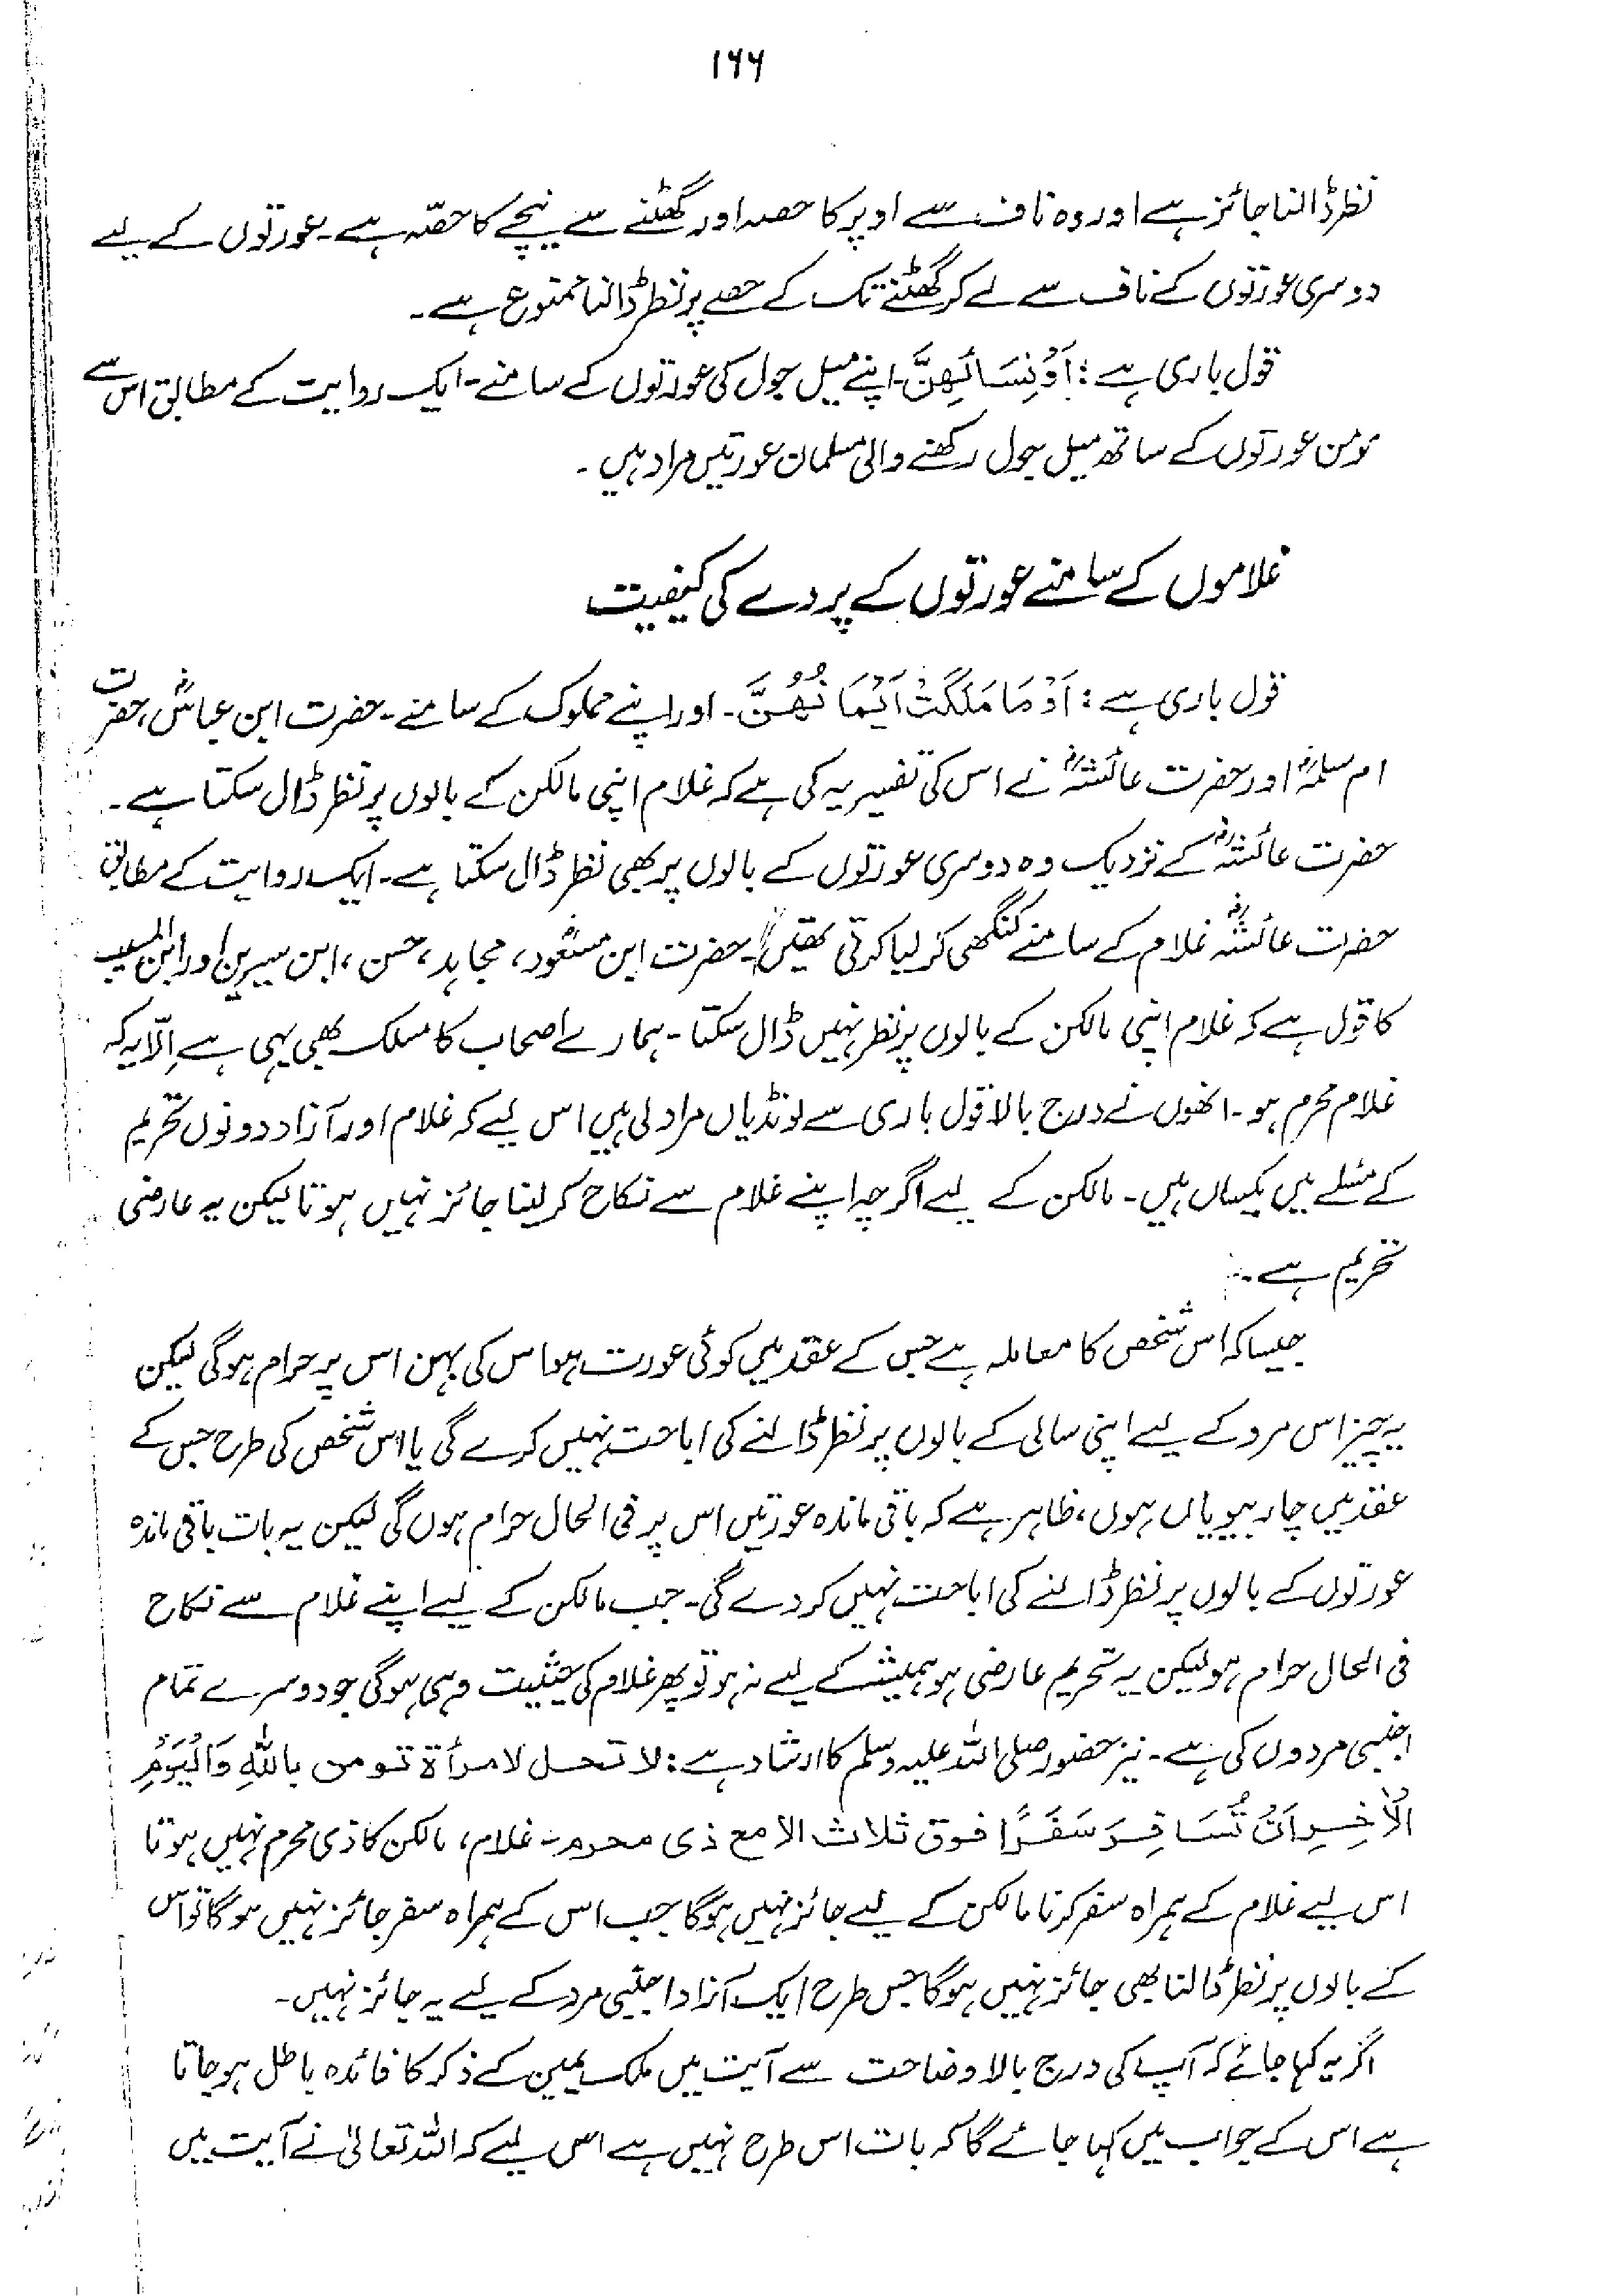 ۱۶۶
نظر ڈالنا جائز ہے اور وہ ناف سے اوپر کا حصہ اور گھٹنے سے نیچے کا حصّہ ہے۔ عورتوں کے لیے
دوسری عورتوں کے ناف سے لے کر گھٹنے تک کے حصے پر نظر ڈالنا ممنوع ہے۔
قول باری ہے: اَوْ نِسَائِهِنَّ۔ اپنے میل جول کی عورتوں کے سامنے۔ ایک روایت کے مطابق اس سے
مومن عورتوں کے ساتھ میل جول رکھنے والی مسلمان عورتیں مراد ہیں۔
غلاموں کے سامنے عورتوں کے پردے کی کیفیت
قول باری ہے: اَوْ مَا مَلَكَتْ اَيْمَا نُهُنَّ۔ اور اپنے مملوک کے سامنے۔ حضرت ابن عباسؓ، حضرت
ام سلمہؓ اور حضرت عائشہؓ نے اس کی تفسیر یہ کی ہے کہ غلام اپنی مالکن کے بالوں پر نظر ڈال سکتا ہے۔
حضرت عائشہؓ کے نزدیک وہ دوسری عورتوں کے بالوں پر بھی نظر ڈال سکتا ہے۔ ایک روایت کے مطابق
حضرت عائشہؓ غلام کے سامنے کنگھی کر لیا کرتی تھیں۔ حضرت ابن مسعودؓ، مجاہد، حسن، ابن سیرین اور ابن المسیب
کا قول ہے کہ غلام اپنی مالکن کے بالوں پر نظر نہیں ڈال سکتا۔ ہمارے اصحاب کا مسلک بھی یہی ہے اِلّا یہ کہ
غلام محرم ہو۔ انھوں نے درج بالا قول باری سے لونڈیاں مراد لی ہیں اس لیے کہ غلام اور آزاد دونوں تحریم
کے مسئلے میں یکساں ہیں۔ مالکن کے لیے اگرچہ اپنے غلام سے نکاح کر لینا جائز نہیں ہوتا لیکن یہ عارضی
تحریم ہے۔
جیسا کہ اس شخص کا معاملہ ہے جس کے عقد میں کوئی عورت ہو اس کی بہن اس پر حرام ہوگی لیکن
یہ چیز اس مرد کے لیے اپنی سالی کے بالوں پر نظر ڈالنے کی اباحت نہیں کرے گی یا اس شخص کی طرح جس کے
عقد میں چار بیویاں ہوں، ظاہر ہے کہ باقی ماندہ عورتیں اس پر فی الحال حرام ہوں گی لیکن یہ بات باقی ماندہ
عورتوں کے بالوں پر نظر ڈالنے کی اباحت نہیں کر دے گی۔ جب مالکن کے لیے اپنے غلام سے نکاح
فی الحال حرام ہو لیکن یہ تحریم عارضی ہو ہمیشہ کے لیے نہ ہو تو پھر غلام کی حیثیت وہی ہوگی جو دوسرے تمام
اجنبی مردوں کی ہے۔ نیز حضور صلی اللہ علیہ وسلم کا ارشاد ہے: لا تحل لامرأة تومن باللهِ وَالْيَوْمِ
الْاٰخِرِ اَنْ تُسَافِرَ سَفَرًا فوق ثلاث الا مع ذى محرم۔ غلام، مالکن کا ذی محرم نہیں ہوتا
اس لیے غلام کے ہمراہ سفر کرنا مالکن کے لیے جائز نہیں ہوگا جب اس کے ہمراہ سفر جائز نہیں ہوگا تو اس
کے بالوں پر نظر ڈالنا بھی جائز نہیں ہوگا جس طرح ایک آزاد اجنبی مرد کے لیے یہ جائز نہیں۔
اگر یہ کہا جائے کہ آپ کی درج بالا وضاحت سے آیت میں ملک یمین کے ذکر کا فائدہ باطل ہو جاتا
ہے اس کے جواب میں کہا جائے گا کہ بات اس طرح نہیں ہے اس لیے کہ اللہ تعالیٰ نے آیت میں